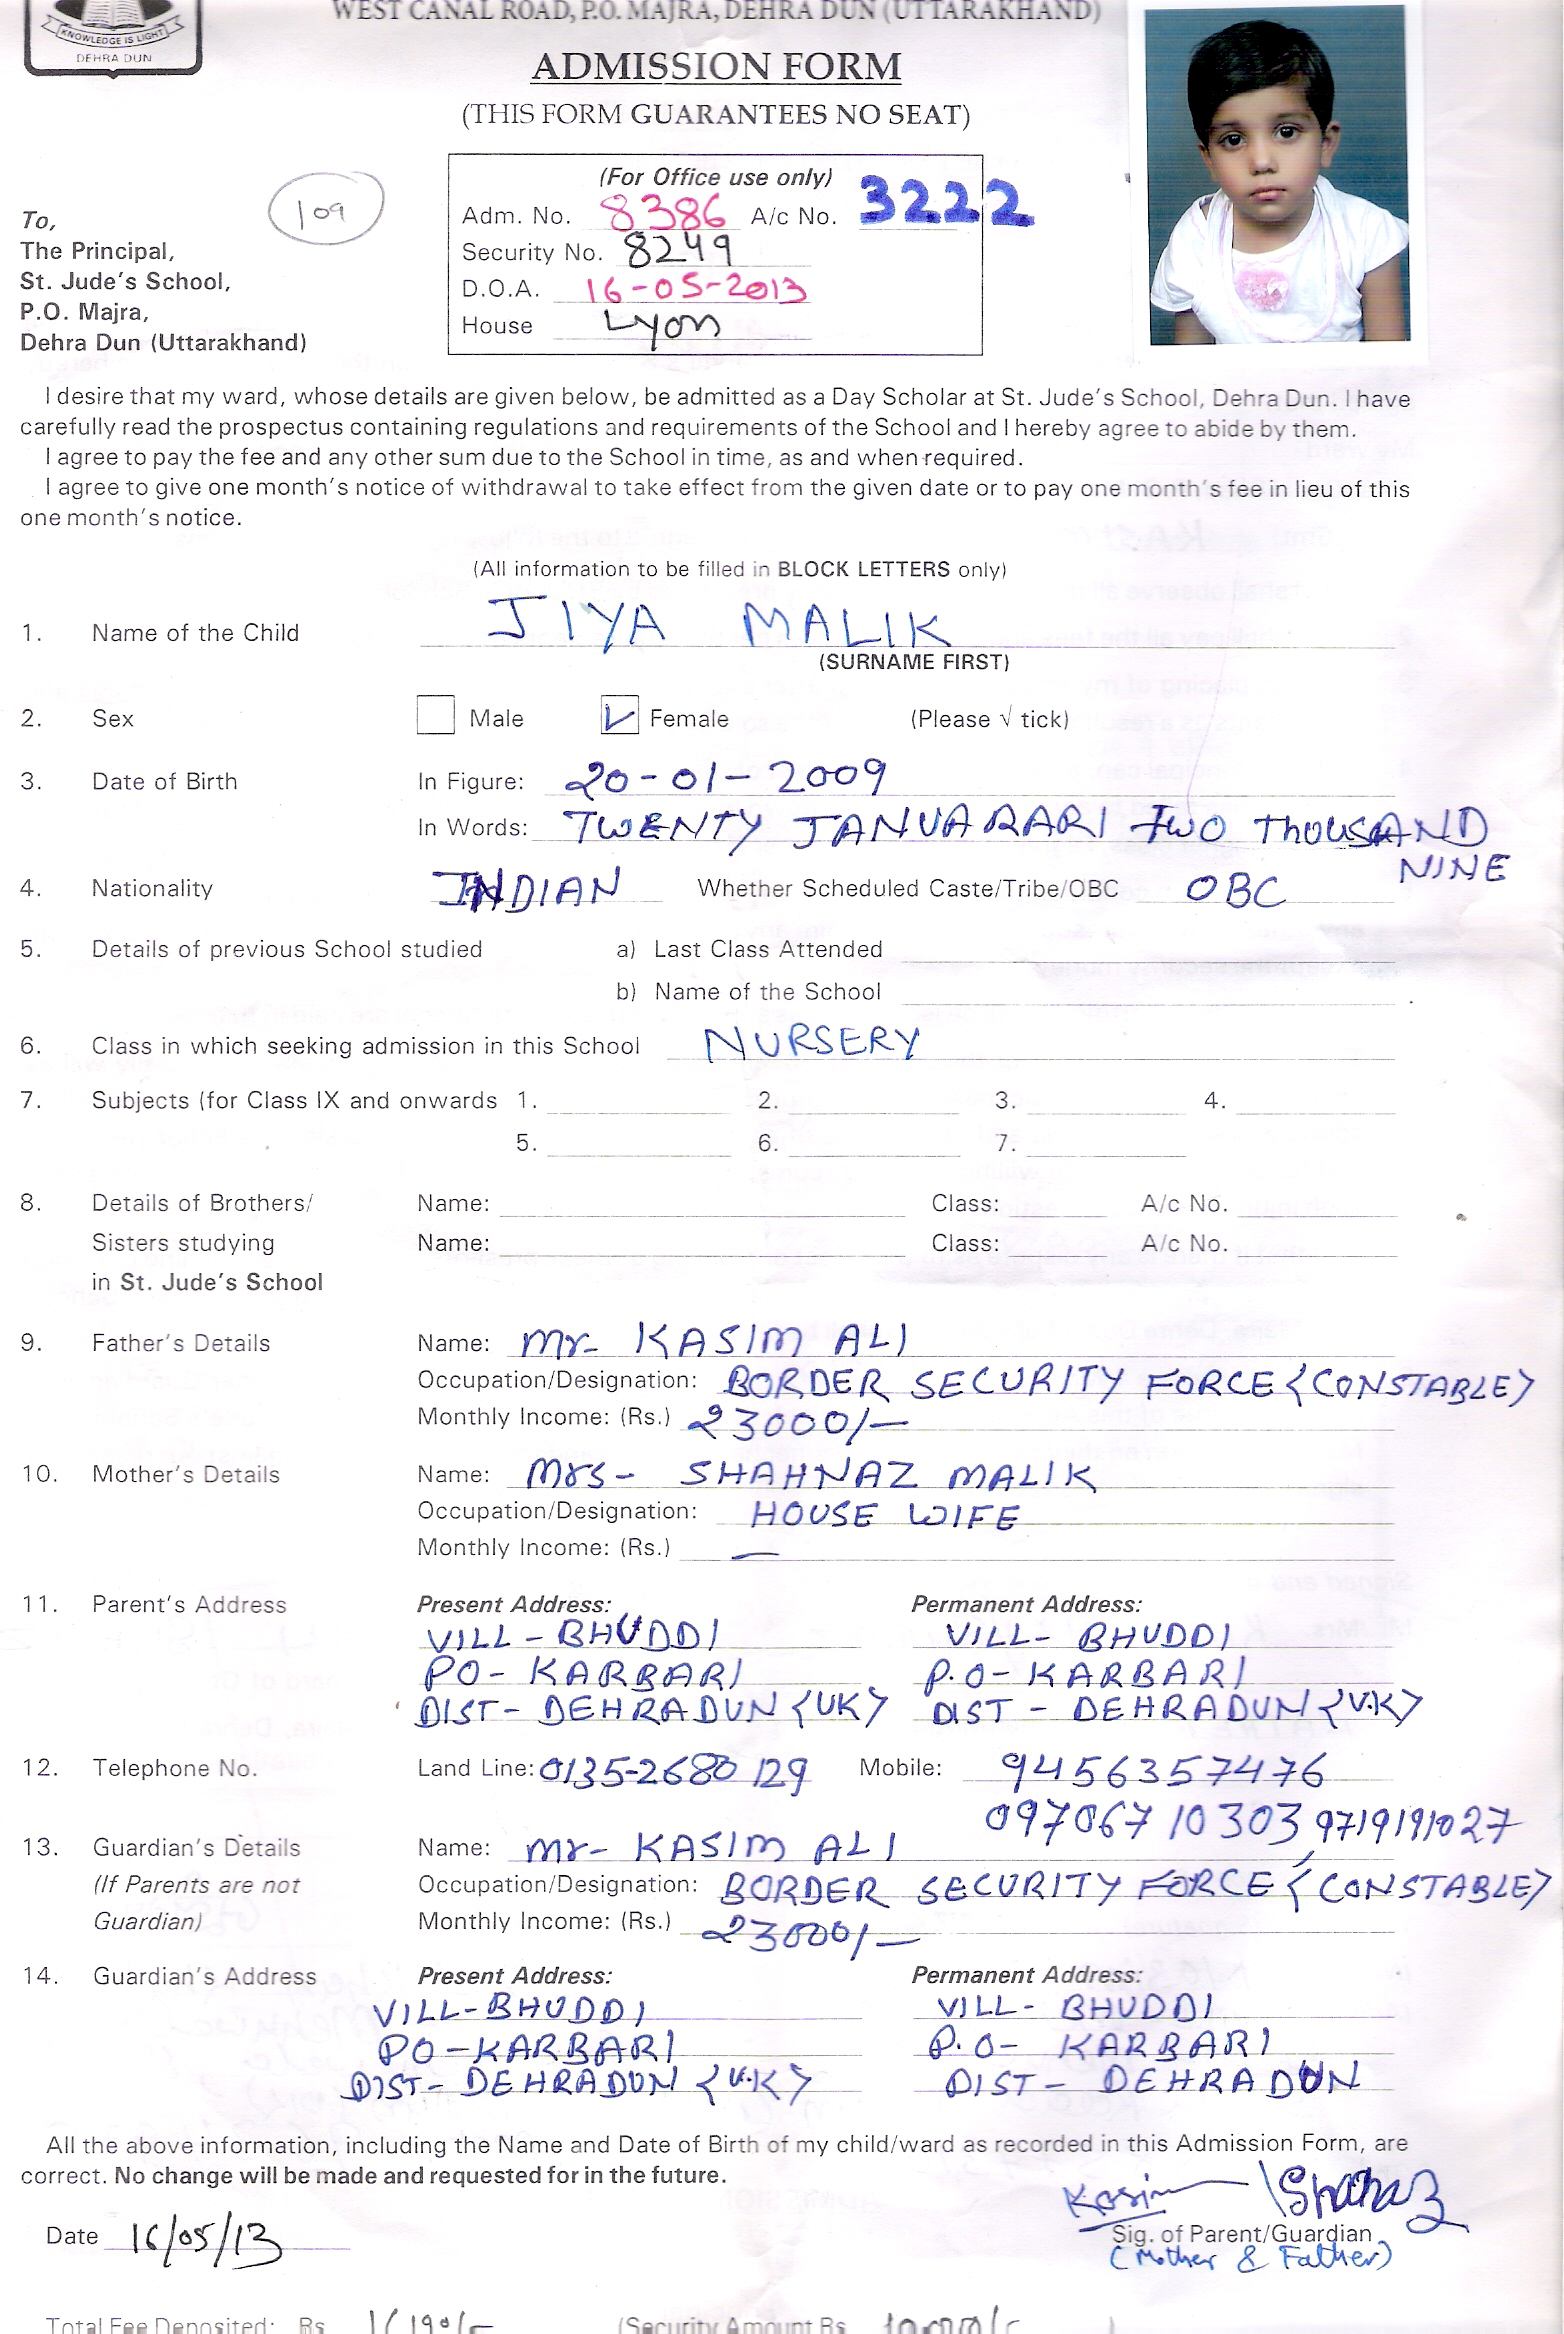 WEST CANAL ROAD, P.O. MAJRA, DEHRA DUN (UTTARAKHAND)
KNOWLEDGE IS LIGHT
DEHRA DUN
ADMISSION FORM
(THIS FORM GUARANTEES NO SEAT)
109
(For Office use only)
Adm. No. 8386 A/c No. 3222
Security No. 8249
D.O.A. 16-05-2013
House Lyon
To,
The Principal,
St. Jude's School,
P.O. Majra,
Dehra Dun (Uttarakhand)
I desire that my ward, whose details are given below, be admitted as a Day Scholar at St. Jude's School, Dehra Dun. I have
carefully read the prospectus containing regulations and requirements of the School and I hereby agree to abide by them.
I agree to pay the fee and any other sum due to the School in time, as and when required.
I agree to give one month's notice of withdrawal to take effect from the given date or to pay one month's fee in lieu of this
one month's notice.
(All information to be filled in BLOCK LETTERS only)
1. Name of the Child JIYA MALIK
(SURNAME FIRST)
2. Sex Male Female (Please √ tick)
3. Date of Birth In Figure: 20-01-2009
In Words: TWENTY JANUARARI TWO THOUSAND
NINE
4. Nationality INDIAN Whether Scheduled Caste/Tribe/OBC OBC
5. Details of previous School studied a) Last Class Attended
b) Name of the School
6. Class in which seeking admission in this School NURSERY
7. Subjects (for Class IX and onwards 1. 2. 3. 4.
5. 6. 7.
8. Details of Brothers/ Name: Class: A/c No.
Sisters studying Name: Class: A/c No.
in St. Jude's School
9. Father's Details Name: Mr- KASIM ALI
Occupation/Designation: BORDER SECURITY FORCE {CONSTABLE}
Monthly Income: (Rs.) 23000/-
10. Mother's Details Name: Mrs- SHAHNAZ MALIK
Occupation/Designation: HOUSE WIFE
Monthly Income: (Rs.) —
11. Parent's Address Present Address: Permanent Address:
VILL-BHUDDI VILL-BHUDDI
PO-KARBARI P.O-KARBARI
DIST-DEHRADUN {UK} DIST-DEHRADUN {U.K}
12. Telephone No. Land Line: 0135-2680129 Mobile: 9456357476
09706710303 9719191027
13. Guardian's Details Name: Mr- KASIM ALI
(If Parents are not Occupation/Designation: BORDER SECURITY FORCE {CONSTABLE}
Guardian) Monthly Income: (Rs.) 23000/-
14. Guardian's Address Present Address: Permanent Address:
VILL-BHUDDI VILL-BHUDDI
PO-KARBARI P.O-KARBARI
DIST-DEHRADUN {U.K} DIST-DEHRADUN
All the above information, including the Name and Date of Birth of my child/ward as recorded in this Admission Form, are
correct. No change will be made and requested for in the future.
Kasim Shahnaz
Date 16/05/13 Sig. of Parent/Guardian
(Mother & Father)
Total Fee Deposited: Rs (Security Amount Rs